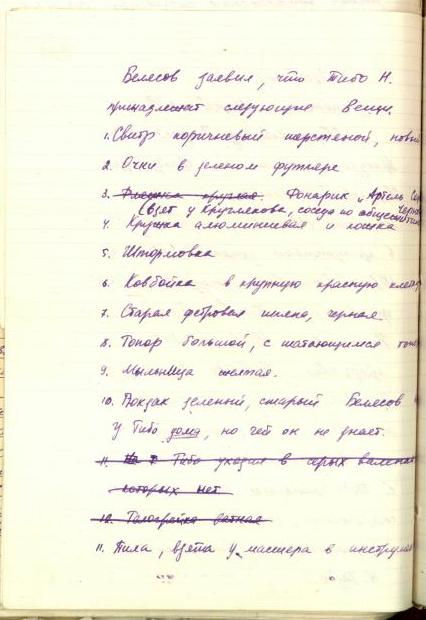 Белесов заявил, что Тибо Н.
принадлежат следующие вещи.
1. Свитр коричневый шерстеной, новый
2. Очки в зеленом футляре
3. Фляжка круглая. Фонарик „Артель
(взят у Круглякова, соседа по общежитию
4. Кружка алюминиевая и ложка
5. Штормовка
6. Ковбойка в крупную красную клетку
7. Старая фетровая шляпа, черная
8. Топор большой, с шатающимся
9. Мыльница желтая.
10. Рюкзак зеленый, старый Белесов
у Тибо дома, но чей он не знает.
11. Тибо уходил в серых валенках
которых нет
12. Телогрейка ватная
11. Пила, взята у мастера в